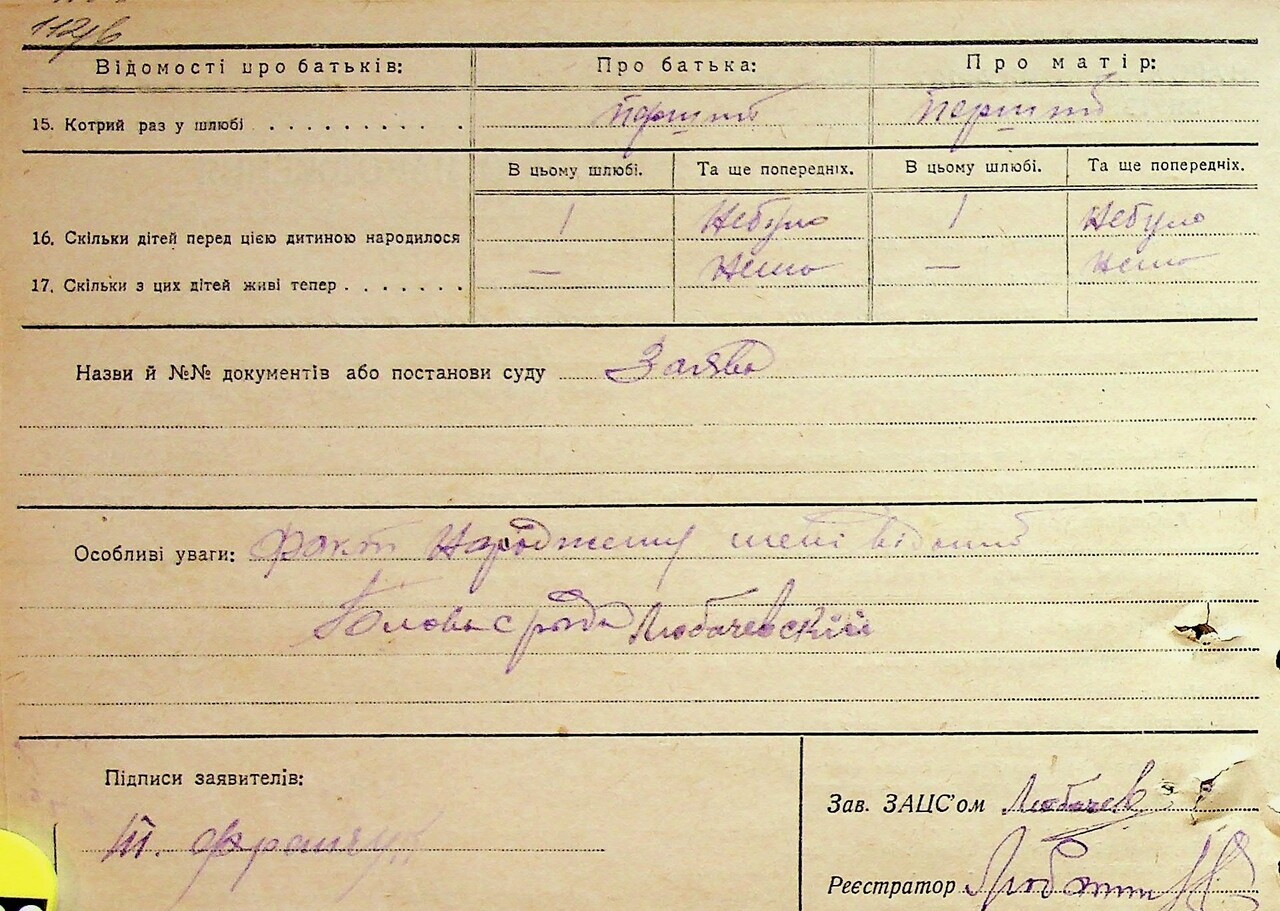 112/в
Відомості про батьків: Про батька: Про матір:
15. Котрий раз у шлюбі . . . . . . . . . . перший перший
В цьому шлюбі. Та ще попередніх. В цьому шлюбі. Та ще попередніх.
16. Скільки дітей перед цією дитиною народилося 1 Небуло 1 Небуло
17. Скільки з цих дітей живі тепер . . . . . . . — Нема — Нема
Назви й №№ документів або постанови суду Заява
Особливі уваги: Факт народження мені відомий
Голова с ради Любачевский
Підписи заявителів:
Зав. ЗАЦС'ом Любачев
Реєстратор